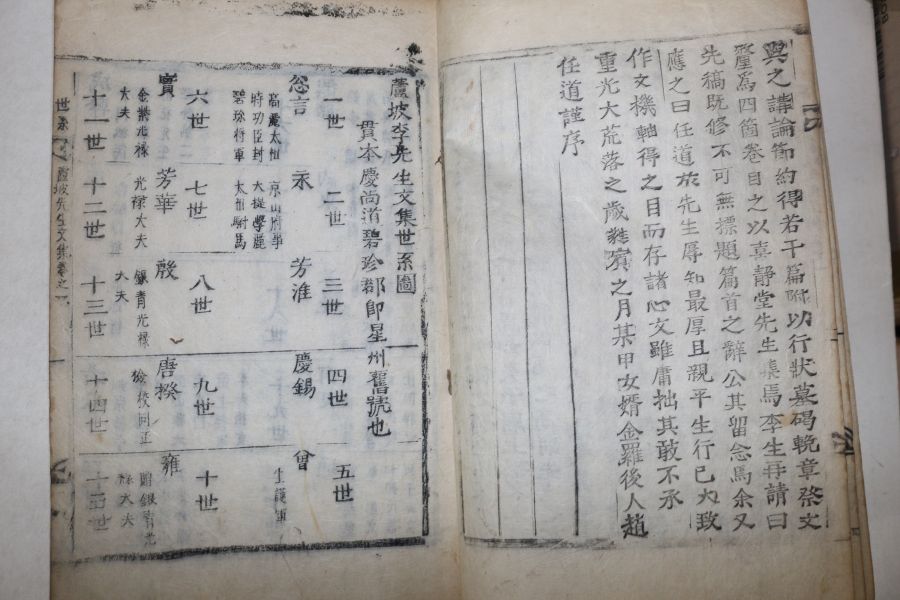 與之講論節約得若干篇附以行狀墓碣輓章祭文
釐爲四箇卷目之以喜靜堂先生集焉李生再請曰
先稿旣修不可無標題篇首之辭公其留念焉余又
應之曰任道於先生辱知最厚且親平生行已大致
作文機軸得之目而存諸心文雖庸拙其敢不承
重光大荒落之歲蕤賓之月某甲女婿金羅後人趙
任道謹序
蘆坡李先生文集世系圖
貫本慶尚道碧珍郡卽星州舊號也
一世
二世
三世
四世
五世
忩言
永
芳淮
慶錫
曾
高麗太祖
特功臣封
碧珍將軍
京山府事
大提學麗
太祖駙馬
生護軍
六世
七世
八世
九世
十世
實
芳華
殷
唐揆
雍
金紫光祿
大夫
光祿大夫
銀青光祿
大夫
檢校同正
銀青光
祿大夫
十一世
十二世
十三世
十四世
十五世
世系
蘆坡先生文集卷之一